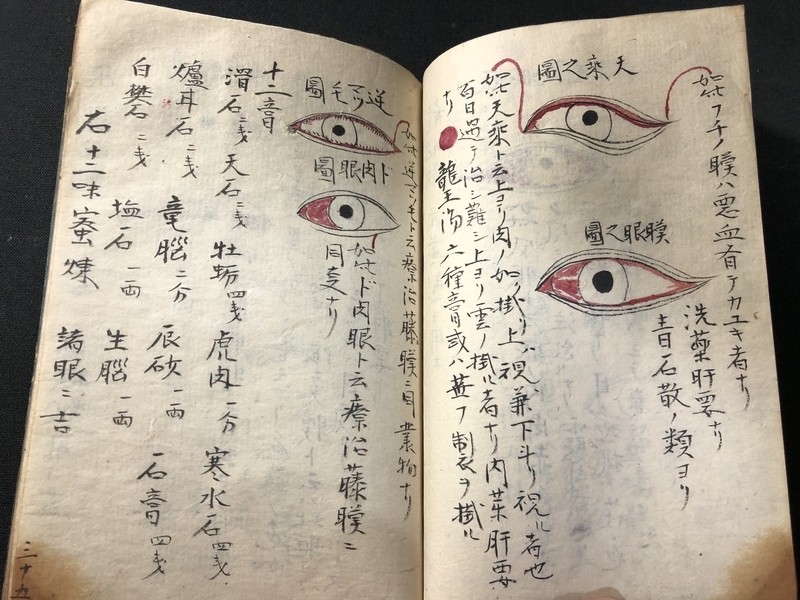 如此フチノ膜ハ悪血有テカユキ者ナリ
洗薬肝要ナリ
青石散ノ類ヨリ
膜眼之圖
天乗之圖
如此天乗ト云上ヨリ肉ノ如ク掛リ上ハ視兼下斗リ視ル者也
百日過テ治シ難シ上ヨリ雲ノ掛ル者ナリ内薬肝要
ナリ 龍王湯 六種膏或ハ ヲ掛ル
逆マツ毛圖
如此逆マツモト云療治藤膜ニ同 物ナリ
ド肉眼圖
如此ド肉眼ト云療治藤膜ニ
同支ナリ
十二膏
滑石 弐匁 天石 弐匁 牡蛎 四匁 虎肉 一分 寒水石 四匁
爐甘石 二匁 竜腦 二分 辰砂 一両 石膏 四匁
白礬 二匁 塩石 一両 生腦 一両
右十二味蜜煉 諸眼ニ吉